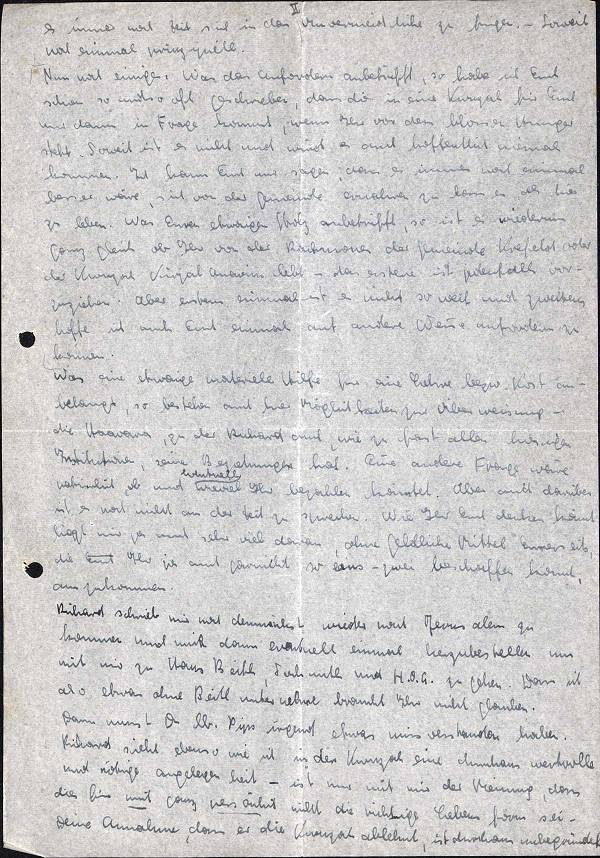 II
es immer noch Zeit sich in das Unvermeidliche zu fügen. – Soweit
noch einmal prinzipiell.
Nun noch einiges: Was das Anfordern anbetrifft, so habe ich Euch
schon so und so oft geschrieben, dass die in eine Kwuzah für Euch
nur dann in Frage kommt, wenn Ihr vor dem blossen Hunger
steht. Soweit ist es nicht und wird es auch hoffentlich niemals
kommen. Ich kann Euch nur sagen, dass es immer noch einmal
besser wäre, sich von der Gemeinde ernähren zu lassen als hier
zu leben. Was Euren etwaigen Stolz anbetrifft, so ist es wiederum
ganz gleich ob Ihr von der Gemeinde Krefeld oder
der Kwuzah lebt – das erstere ist jedenfalls vor-
zuziehen. Aber erstens einmal ist es nicht so weit und zweitens
hoffe ich auch Euch einmal auf andere Weise anfordern zu
können.
Was eine etwaige materielle Hilfe für eine Lehre bezw. Kost an-
belangt, so bestehen auch hier Möglichkeiten zur Überweisung –
die Haavara, zu der Richard auch, wie zu fast allen hiesigen
Institutionen, seine Beziehungen hat. Eine andere Frage wäre
natürlich ob und wieviel eventuell Ihr bezahlen könntet. Aber auch darüber
ist es noch nicht an der Zeit zu sprechen. Wie Ihr Euch denken könnt
liegt mir ja auch sehr viel daran, ohne geldliche Mittel Eurerseits,
die Ihr ja auch gewiss nicht so eins-zwei beschaffen könnt,
auszukommen.
Richard schrieb mir noch demnächst wieder nach Jerusalem zu
kommen und mich dann eventuell einmal herzubestellen um
mit mir zu Hans Beith und H.O.G. zu gehen. Dass ich
also etwas ohne Beith unternehme braucht Ihr nicht glauben.
Dann musst Du lb. irgend etwas missverstanden haben.
Richard sieht ebenso wie ich in der Kwuzah eine durchaus wertvolle
und nötige Angelegenheit – ist nur mit mir der Meinung, dass
dies für mich ganz persönlich nicht die richtige Lebensform sei –
Deine Annahme, dass er die Kwuzah ablehnt, ist durchaus unbegründet